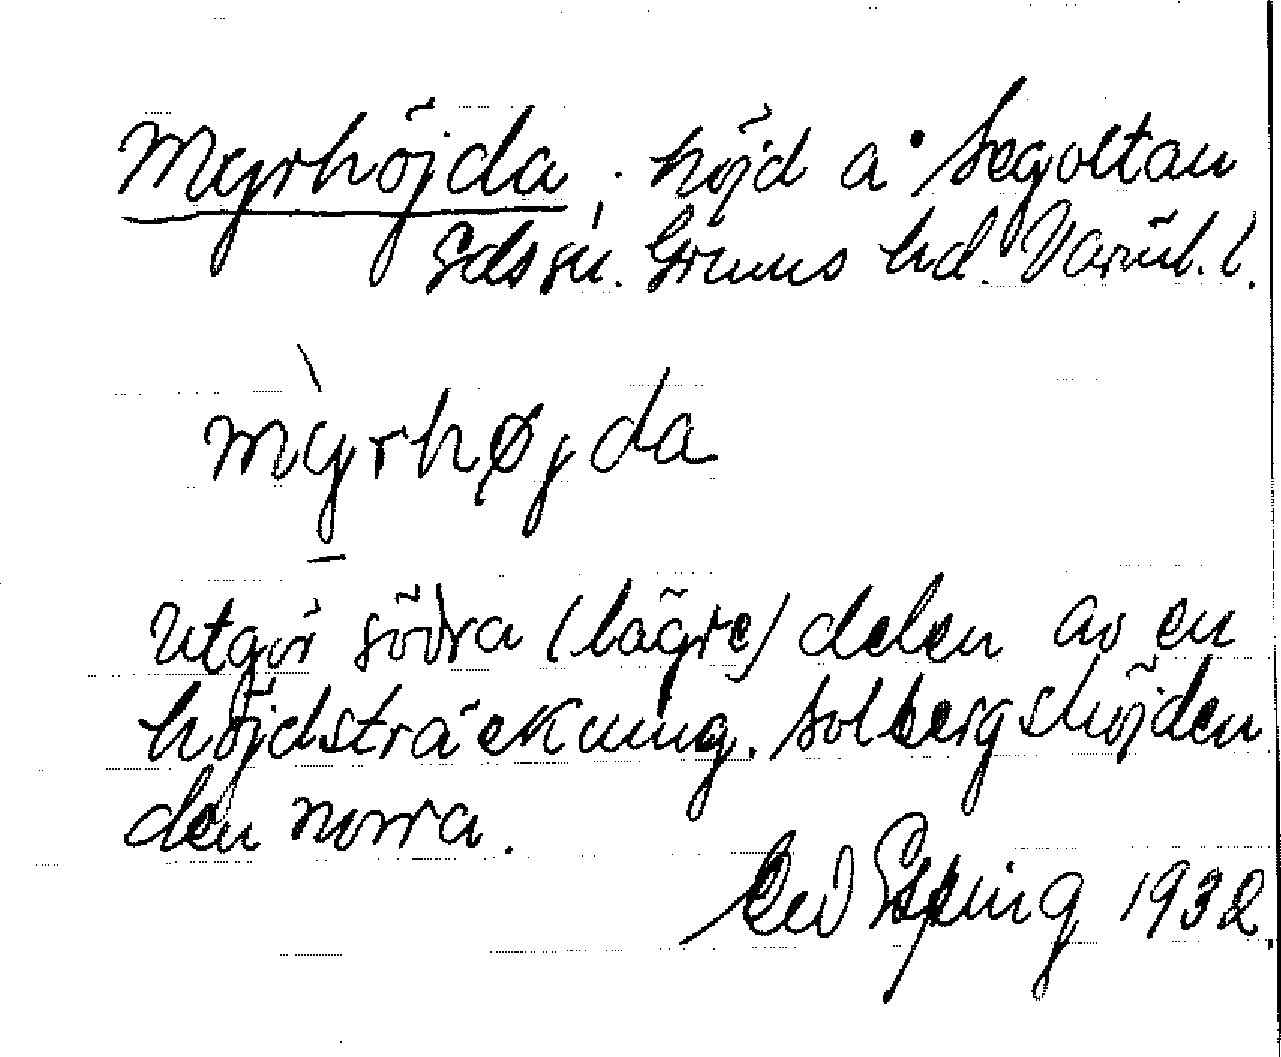 Myrhöjda, höjd å Segoltan
Eds sn. Grums hd. Värml. l.
mỳrhøjda
Utgör södra (lägre) delen av en
höjdsträckning. Solbergshöjden
den norra.
Esping 1932.